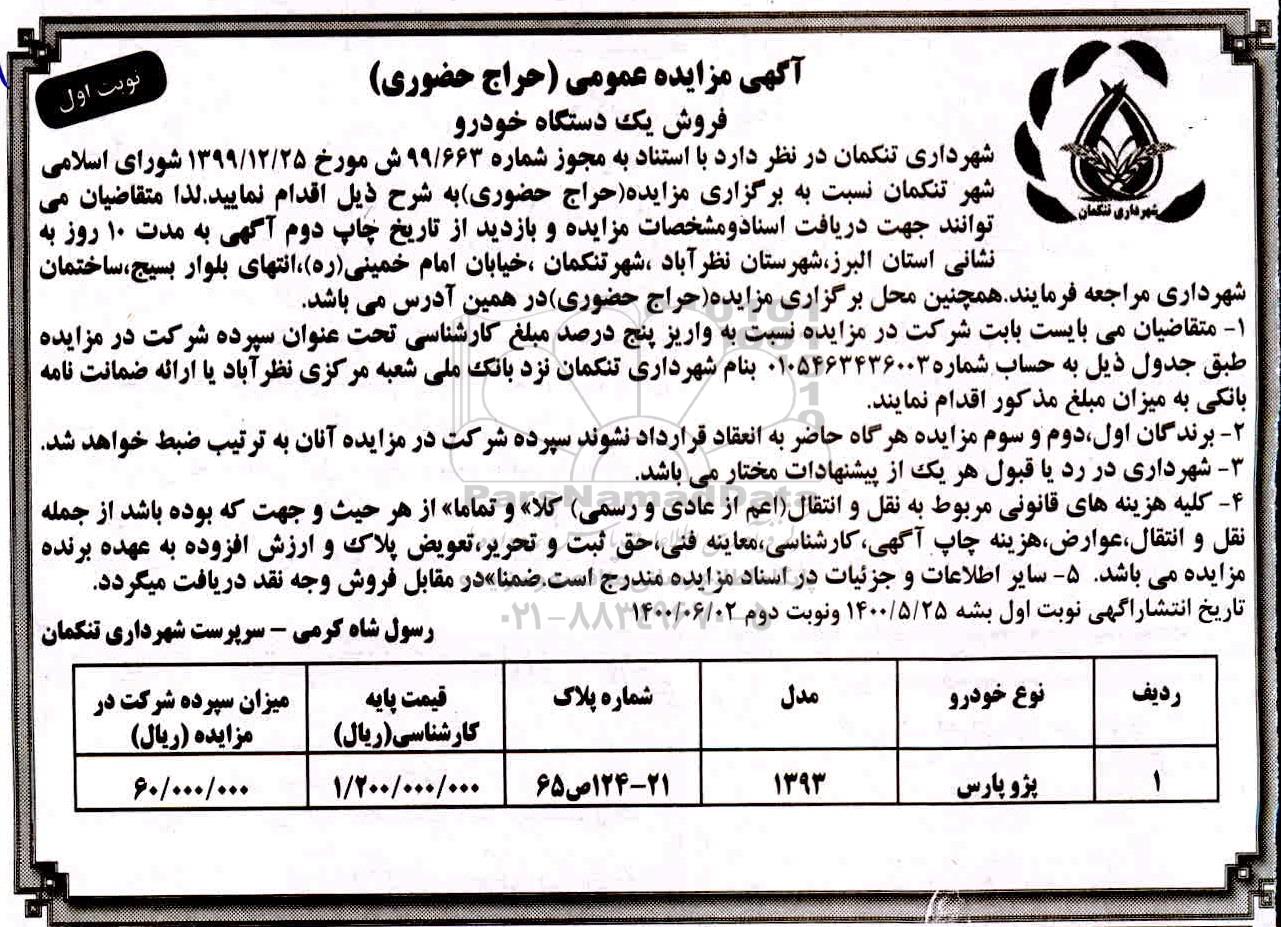 نوبت اول
آگهی مزایده عمومی (حراج حضوری)
فروش یک دستگاه خودرو
شهرداری تنکمان
شهرداری تنکمان در نظر دارد با استناد به مجوز شماره ۹۹/۶۶۳ ش مورخ ۱۳۹۹/۱۲/۲۵ شورای اسلامی
شهر تنکمان نسبت به برگزاری مزایده(حراج حضوری)به شرح ذیل اقدام نمایید.لذا متقاضیان می
توانند جهت دریافت اسنادومشخصات مزایده و بازدید از تاریخ چاپ دوم آگهی به مدت ۱۰ روز به
نشانی استان البرز،شهرستان نظرآباد ،شهرتنکمان ،خیابان امام خمینی(ره)،انتهای بلوار بسیج،ساختمان
شهرداری مراجعه فرمایند.همچنین محل برگزاری مزایده(حراج حضوری)در همین آدرس می باشد.
۱- متقاضیان می بایست بابت شرکت در مزایده نسبت به واریز پنج درصد مبلغ کارشناسی تحت عنوان سپرده شرکت در مزایده
طبق جدول ذیل به حساب شماره۰۱۰۵۴۶۳۴۳۶۰۰۳ بنام شهرداری تنکمان نزد بانک ملی شعبه مرکزی نظرآباد یا ارائه ضمانت نامه
بانکی به میزان مبلغ مذکور اقدام نمایند.
۲- برندگان اول،دوم و سوم مزایده هرگاه حاضر به انعقاد قرارداد نشوند سپرده شرکت در مزایده آنان به ترتیب ضبط خواهد شد.
۳- شهرداری در رد یا قبول هر یک از پیشنهادات مختار می باشد.
ParsNamadData
۴- کلیه هزینه های قانونی مربوط به نقل و انتقال(اعم از عادی و رسمی) کلا» و تماما» از هر حیث و جهت که بوده باشد از جمله
نقل و انتقال،عوارض،هزینه چاپ آگهی،کارشناسی،معاینه فنی،حق ثبت و تحریر،تعویض پلاک و ارزش افزوده به عهده برنده
مزایده می باشد. ۵- سایر اطلاعات و جزئیات در اسناد مزایده مندرج است.ضمنا»در مقابل فروش وجه نقد دریافت میگردد.
تاریخ انتشاراگهی نوبت اول بشه ۱۴۰۰/۵/۲۵ ونوبت دوم ۱۴۰۰/۰۶/۰۲
رسول شاه کرمی – سرپرست شهرداری تنکمان
ردیف نوع خودرو مدل شماره پلاک قیمت پایه کارشناسی(ریال) میزان سپرده شرکت در مزایده (ریال)
۱ پژو پارس ۱۳۹۳ ۲۱-۱۲۴ص۶۵ ۱/۲۰۰/۰۰۰/۰۰۰ ۶۰/۰۰۰/۰۰۰